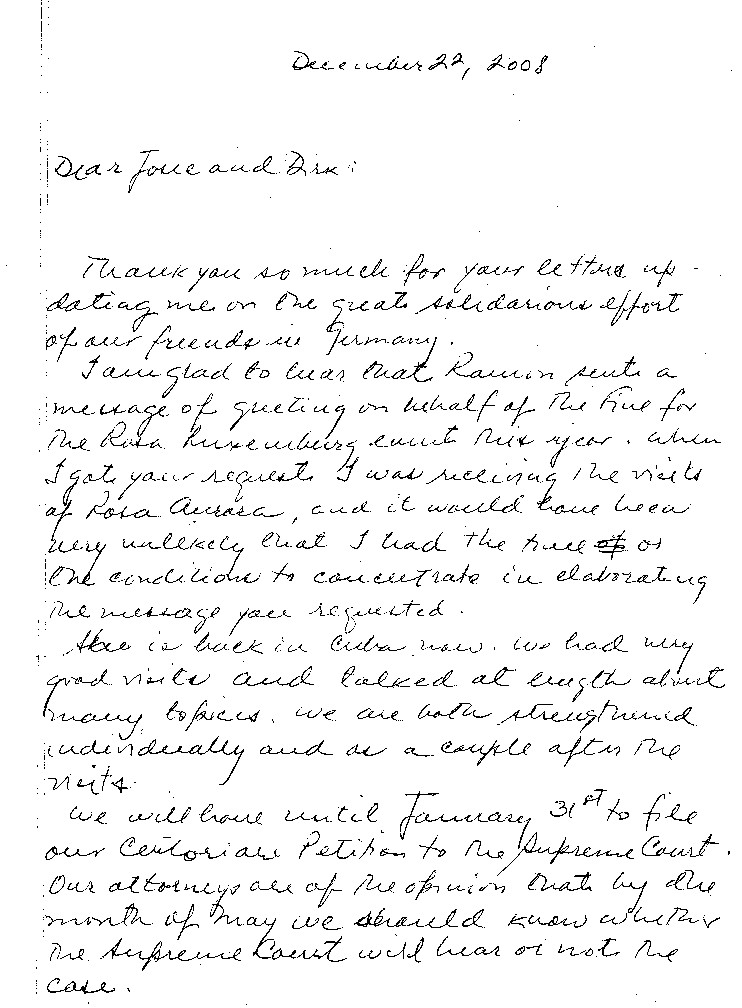 December 22, 2008
Dear Josie and Dirk:
Thank you so much for your letters up-
dating me on the great solidarious effort
of our friends in Germany.
I am glad to hear that Ramon sent a
message of greeting on behalf of the Five for
the Rosa Luxemburg event this year. When
I got your request I was receiving the visits
of Rosa Aurora, and it would have been
very unlikely that I had the time of or
the conditions to concentrate in elaborating
the message you requested.
She is back in Cuba now. We had very
good visits and talked at length about
many topics. We are both strengthened
individually and as a couple after the
visits.
We will have until January 31st to file
our Certoriare Petition to the Supreme Court.
Our attorneys are of the opinion that by the
month of May we should know whether
the Supreme Court will hear or not the
case.